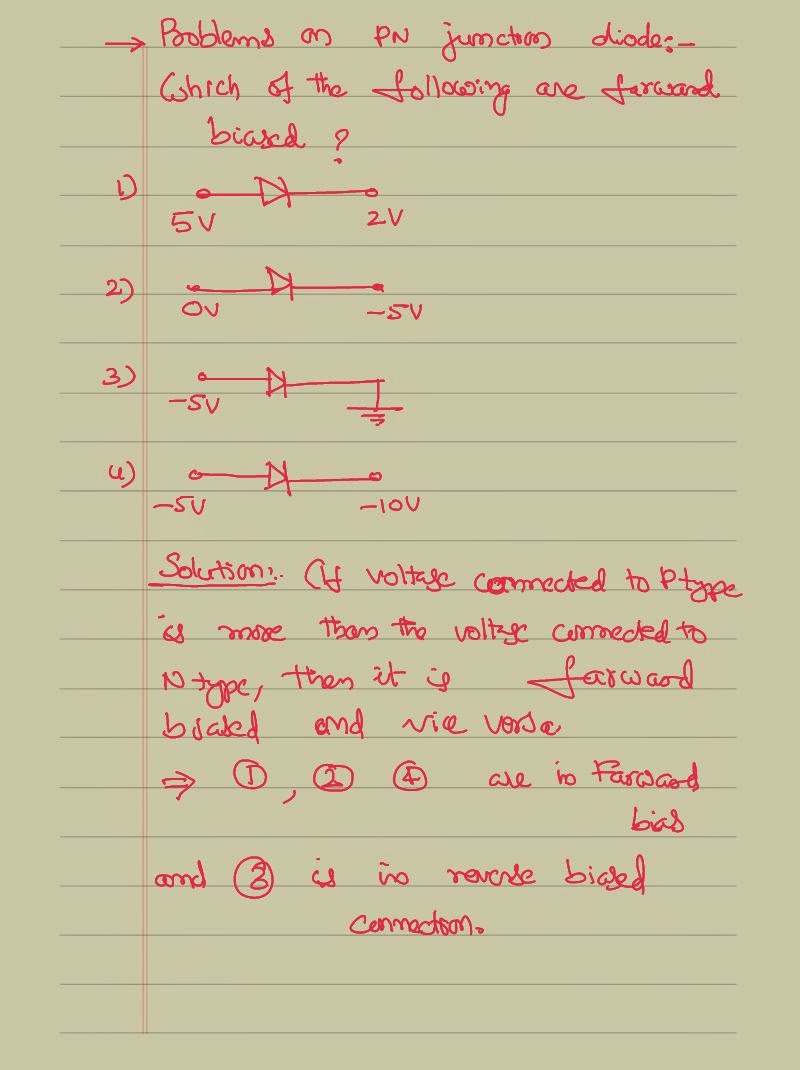 → Problems on PN junction diode:-
Which of the following are forward
biased ?
1)
5V 2V
2)
0V -5V
3)
-5V
4)
-5V -10V
Solution:. (If voltage connected to P type
is more than the voltage connected to
N type, then it is forward
biased and vice versa
⇒ ①, ② ④ are in Forward
bias
and ③ is in reverse biased
connection.